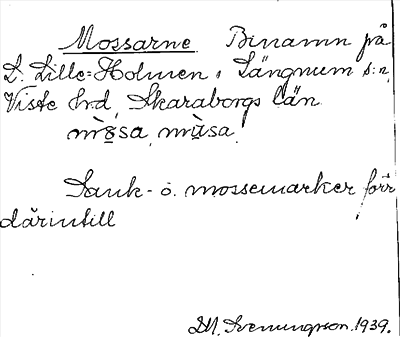 Mossarne Binamn på
L. Lille-Holmen, Längnum s:n
Viste hrd, Skaraborgs län.
mòsa, mùsa
Sank- o. mossemarker förr
därintill
D.A. Svenningson. 1939.